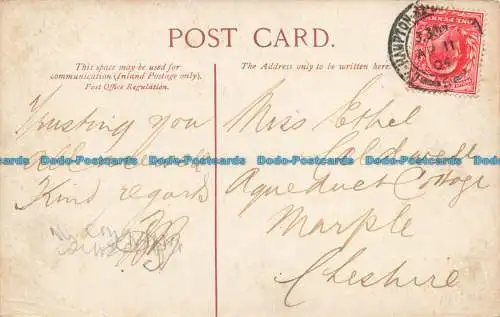 POST CARD.
This space may be used for
communication (Inland Postage only).
Post Office Regulation.
The Address only to be written here.
Trusting you
all are well
Kind regards
Miss Ethel
Caldwell
Aqueduct Cottage
Marple
Cheshire
AMPTON
11
04
ONE PENNY
Duda-Postcards Duda-Postcards Duda-Postcards Duda-Postcards Duda-Postcards